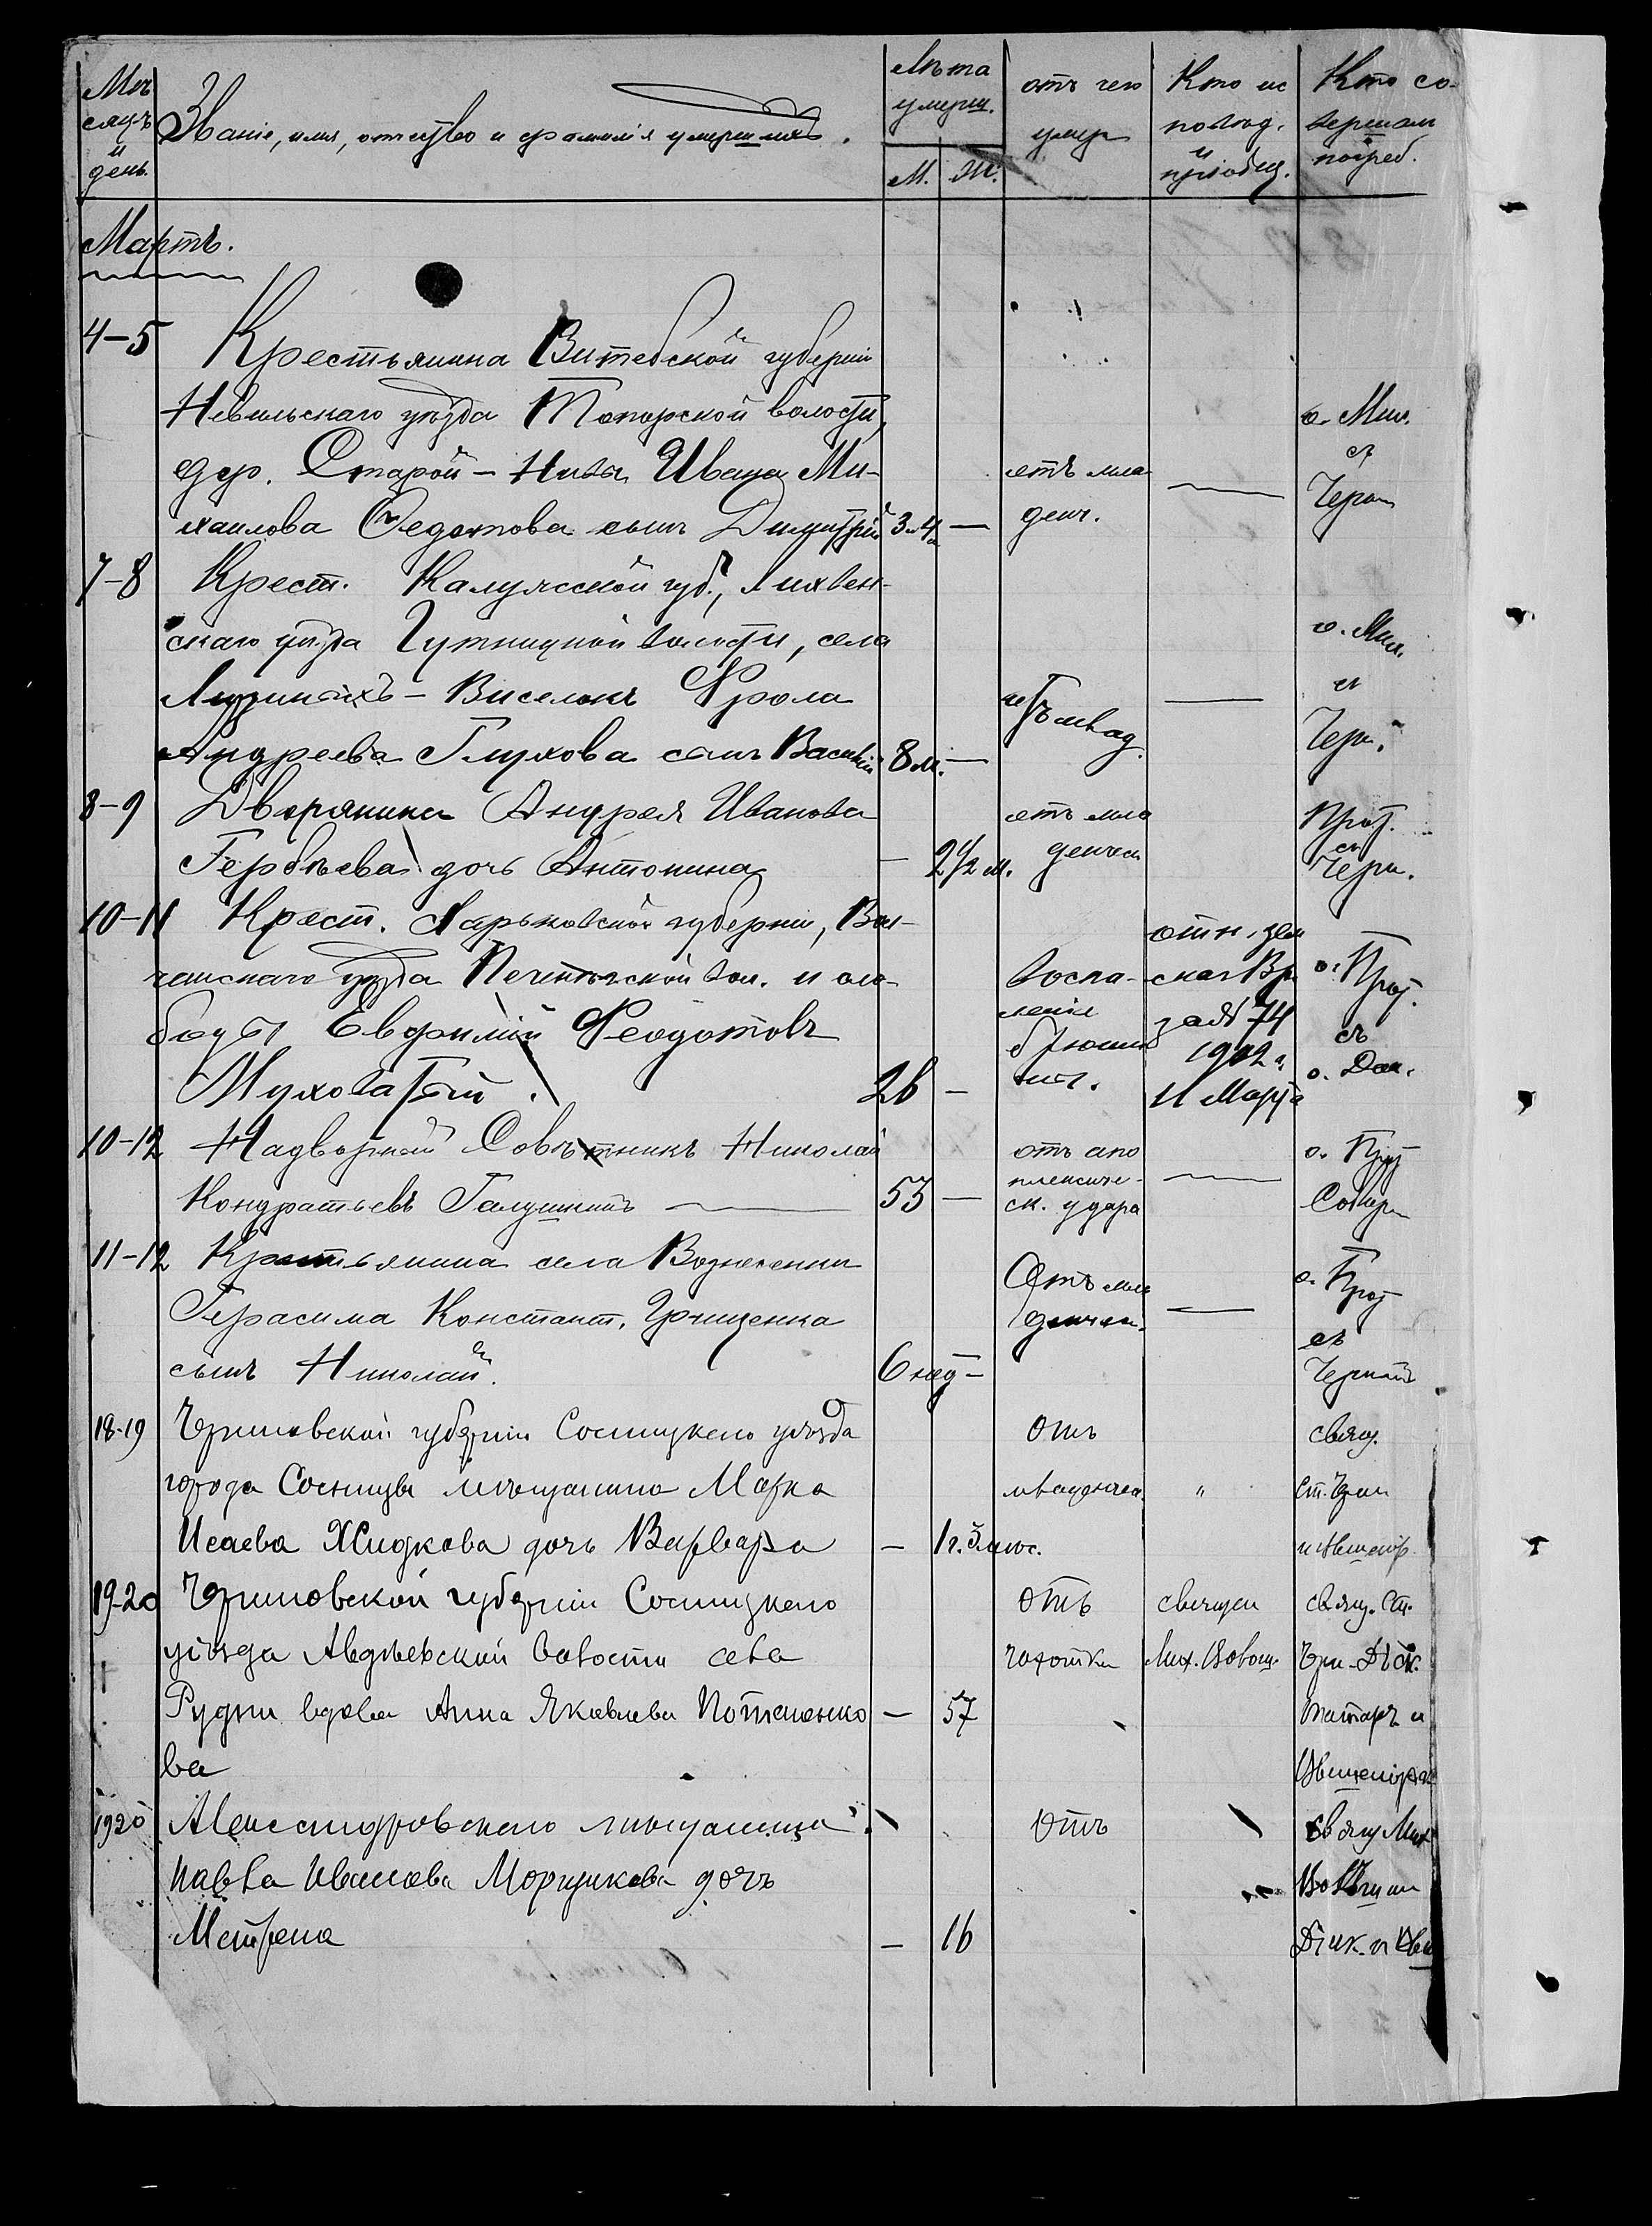 Мѣ
сяцъ
и
день
Званіе, имя, отчество и фамилія умершихъ.
Лѣта
умерш.
М. Ж.
отъ чего
умер
Кто ис
повѣд.
и
пріобщ.
Кто со-
вершал
погреб.
Мартъ.
4-5 Крестьянина Витебской губерніи
Невельскаго уѣзда Топорской волости,
дер. Старой - Нивы Ивана Ми-
хаилова Федотова сынъ Димитрій —
отъ мла
денч.
—
о. Мих.
съ
Черн
7-8 Крест. Калужской губ., Лихвен-
скаго уѣзда волости, села
Выселокъ Фрола
Андреева Глухова сынъ Василій 8 м. —
отъ млад.
—
о. Мих.
съ
Черн.
8-9 Дворянина Андрея Иванова
Гербѣева дочь Антонина — 2 1/2 м.
отъ мла
денческ
Прот.
съ
Черн.
10-11 Крест. Харьковской губерніи, Вол-
чанскаго уѣзда Печенѣжской вол. и сло-
боды Евфимій Феодотовъ
Муховатый. 26 —
воспа-
леніе
брюшины
отн.
за № 74
1902 г.
11 Марта
о. Прот.
съ
о. Дан.
10-12 Надворный Совѣтникъ Николай
Кондратьевъ Галушкинъ — 53 —
отъ апо
плексиче-
ск. удара
—
о. Прот
11-12 Крестьянина села Вознесенки
Герасима Констант. Грищенка
сынъ Николай. 6 нед —
Отъ мла
денчес.
—
о. Прот
съ
18-19 Черниговской губерніи Сосницкаго уѣзда
города Сосницы мѣщанина Марка
Исаева Жидкова дочь Варвара — 1 г. 3 мѣс.
Отъ
младенчес.
"
свящ.
19-20 Черниговской губерніи Сосницкаго
уѣзда Авдѣевской волости села
Рудни вдова Анна Яковлева Потапенко — 57
ва
Отъ
чахотки
священ
Мих.
свящ. Ст.
19 20 Александровского мѣщанина
Павла Иванова Морщикова дочь
Матрена — 16
Отъ
свящ Мих